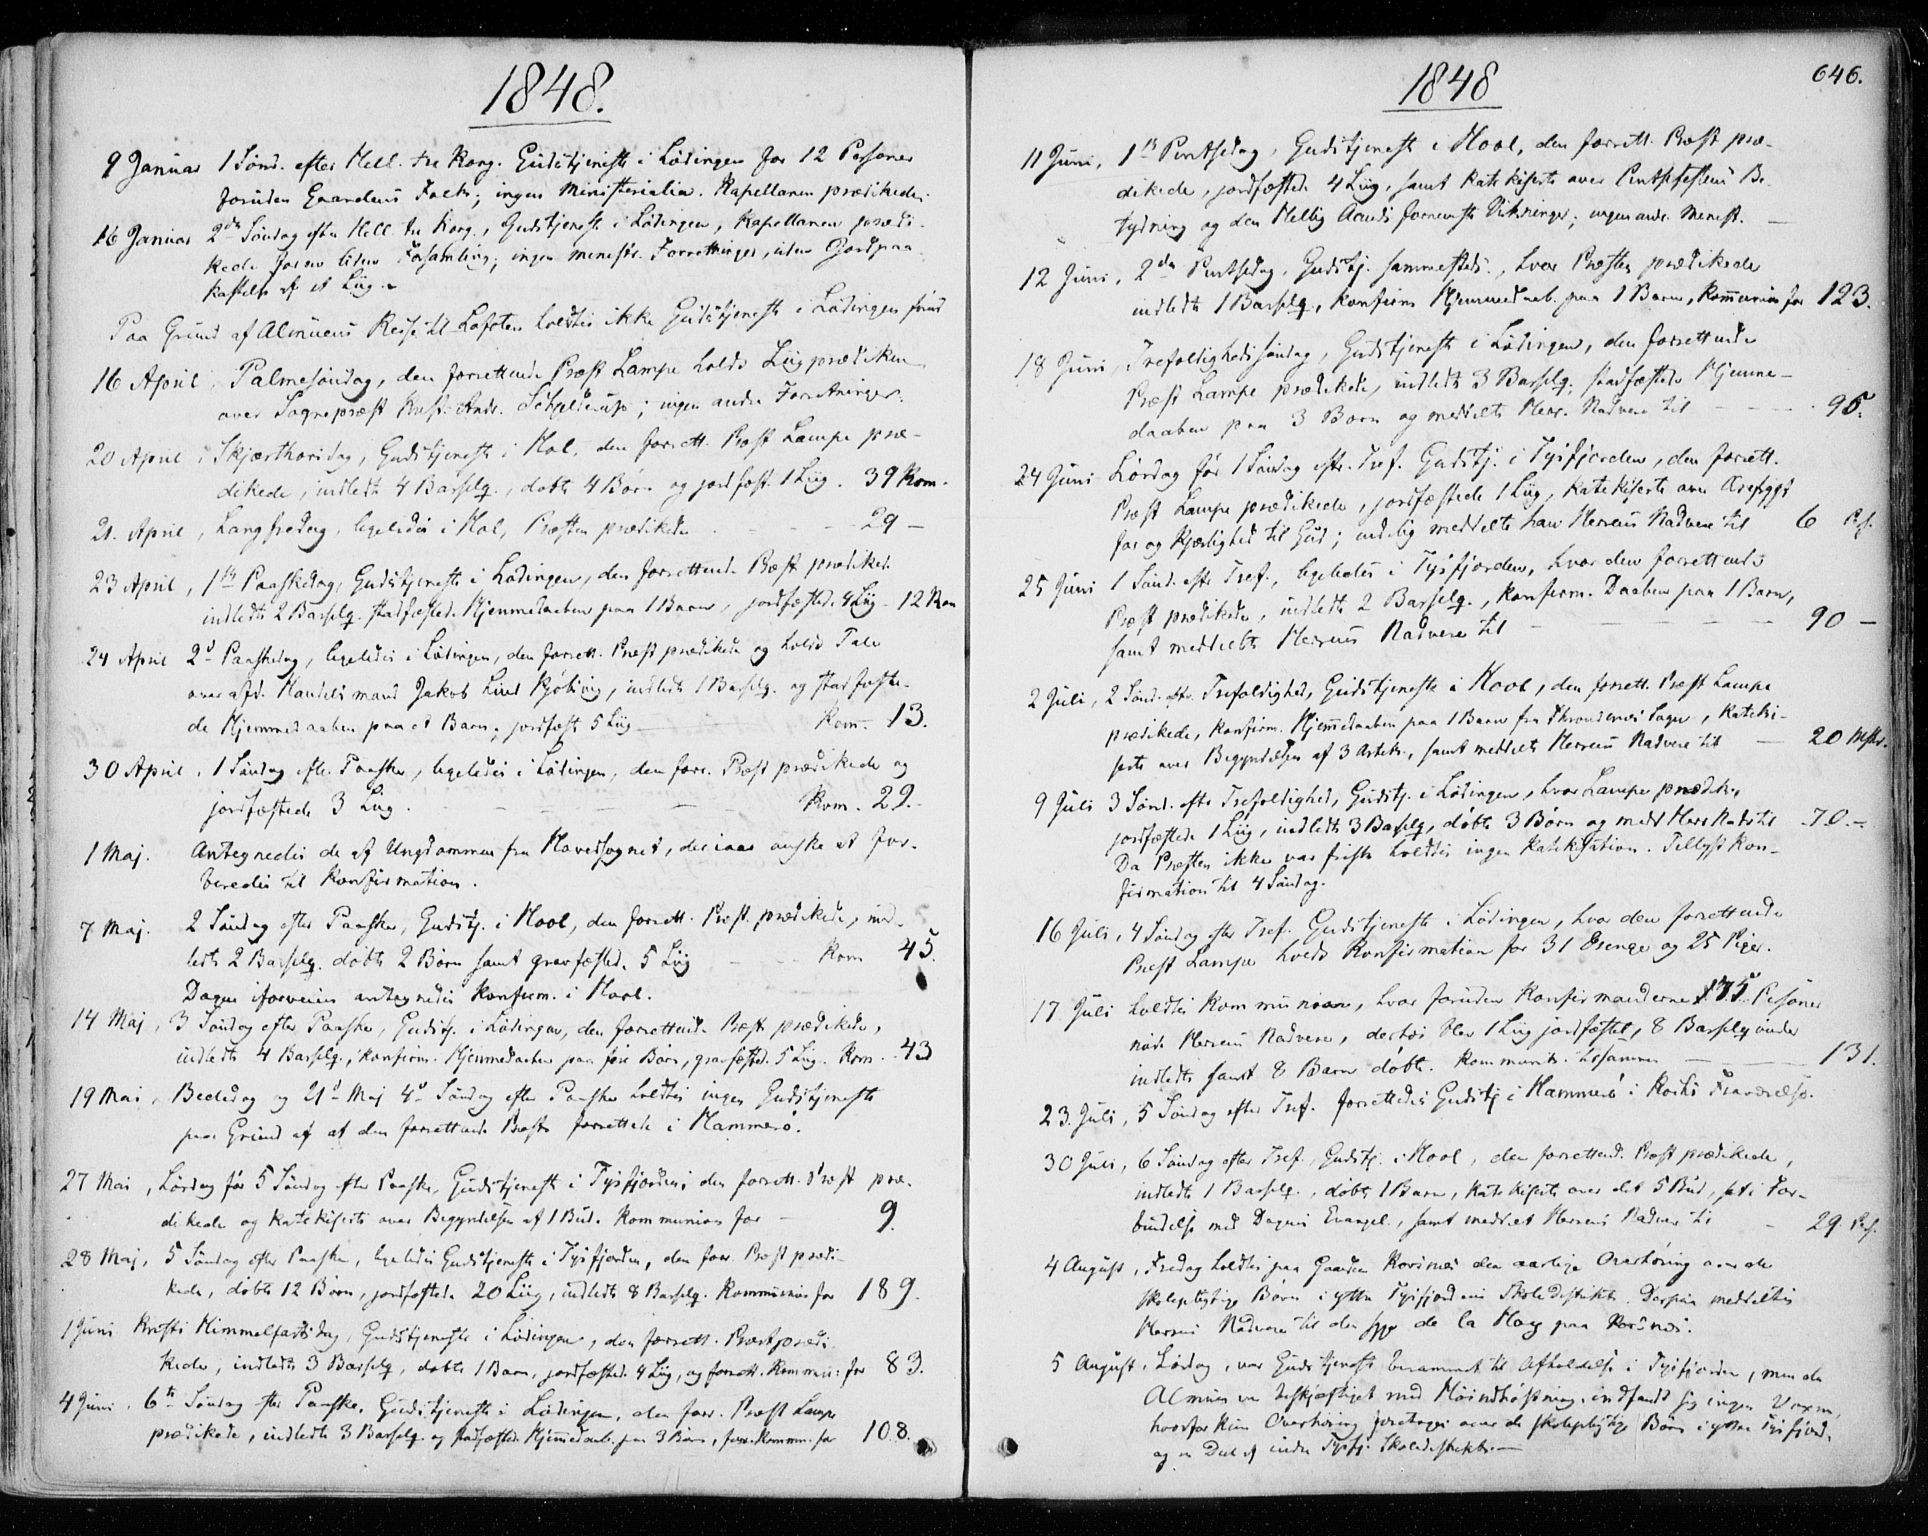 1848.
9 Januar 1 Sønd. efter Hell. tre Kong. Gudstjeneste i Lødingen for 12 Personer
foruden Gaardens Folk; ingen Ministerialia. Kapellanen prædikede.
16 Januar 2den Søndag efter Hell. tre Kong., Gudstjeneste i Lødingen, Kapellanen prædi-
kede for en liden Forsamling; ingen ministr. Forretninger, uden Jordpaa-
kastelse af et Liig.
Paa Grund af Almuens Reise til Lofoten holdtes ikke Gudstjeneste i Lødingen førend
16 April, Palmesøndag, den forrettende Præst Lampe holdt Liigprædiken
over Sognepræst Schjelderup; ingen andre Forretninger.
20 April, Skjærthorsdag, Gudstjeneste i Hol, den forrett. Præst Lampe præ-
dikede, indledte 4 Barselq., døbte 4 Børn og jordfæst. 1 Liig. 39 Kom.
21. April, Langfredag, ligeledes i Hol, Præsten prædikede - - - 29 -
23 April, 1ste Paaskedag, Gudstjeneste i Lødingen, den forrettend. Præst prædiked.
indledte 2 Barselq. stadfæsted. Hjemmedaaben paa 1 Barn, jordfæsted. 4 Liig - 12 Kom
24 April 2d Paaskedag, ligeledes i Lødingen, den forrett. Præst prædikede og holdt Tale
over afd. Handelsmand Jakob Lind Kjøbing, indledte 1 Barselq. og stadfæste-
de Hjemmedaaben paa et Barn, jordfæst 5 Liig - Kom. 13.
30 April, 1 Søndag efter Paaske, ligeledes i Lødingen, den forr. Præst prædikede og
jordfæstede 3 Liig. - - - Kom. 29.
1 Maj. Antegnedes de af Ungdommen fra Hovedsognet, der iaar ønske at for-
beredes til Konfirmation.
7 Maj. 2 Søndag efter Paaske, Gudstj. i Hool, den forrett. Præst. prædikede, ind-
ledte 2 Barselq. døbte 2 Børn samt gravfæsted. 5 Liig - - Kom 45.
Dagen iforveien antegnedes Konfirm. i Hool.
14 Maj, 3 Søndag efter Paaske, Gudstj. i Lødingen, den forrettend. Præst prædikede,
indledte 4 Barselq., konfirm. Hjemmedaaben paa fire Børn, gravfæsted. 5 Liig. Kom. 43
19 Mai, Bededag og 21d Maj 4d Søndag efter Paaske holdtes ingen Gudstjeneste
paa Grund af at den forrettende Præst forrettede i Hammerø.
27 Mai, Lørdag før 5 Søndag efter Paaske, Gudstjeneste i Tysfjorden, den forrett. Præst præ-
dikede og katekiserte over Begyndelsen af 1 Bud. Kommunion for - 9.
28 Maj, 5 Søndag efter Paaske, ligeledes Gudstjeneste i Tysfjorden, den forr. Præst prædi-
kede, døbte 12 Børn, jordfæstede 20 Liig, indledte 8 Barselq. Kommunion for 189.
1 Juni Kristi Himmelfartsdag, Gudstjeneste i Lødingen, den forrett. Præst prædi-
kede, indledte 3 Barselq, døbte 1 Barn, jordfæsted. 4 Liig, og forrett. Kommun: for 83.
4 Juni, 6te Søndag efter Paaske, Gudstjeneste i Lødingen, den forr. Præst Lampe
prædikede, indledte 3 Barselq. og stadfæsted. Hjemmedaab. paa 3 Børn, Komm. for 108.
1848
646.
11 Juni, 1ste Pintsedag, Gudstjeneste i Hool, den forrett. Præst præ-
dikede, jordfæstede 4 Liig, samt katekiserte over Pintsefestens Be-
tydning og den Hellig Aands fornemste Virkninger; ingen andr. Minist. -
12 Juni, 2den Pintsedag, Gudstj. sammesteds, hvor Præsten prædikede
indledte 1 Barselq, konfirm Hjemmedaab. paa 1 Barn, Kommunion for 123.
18 Juni, Trefoldighedssøndag, Gudstjeneste i Lødingen, den forrettende
Præst Lampe prædikede, indledte 3 Barselq., stadfæstede Hjemme-
daaben paa 3 Børn og meddelte Herr. Nadvere til - - - 95.
24 Juni Lørdag før 1 Søndag eftr. Tref. Gudstj. i Tysfjorden, den forrett.
Præst Lampe prædikede, jordfæstede 1 Liig, katekiserte over Ærefrygt
for og Kjærlighed til Gud; endelig meddelte han Herrens Nadvere til 6 Pers.
25 Juni 1 Sønd. efter Tref., ligeledes i Tysfjorden, hvor den forrettende
Præst prædikede, indledte 2 Barselq., konfirm. Daaben paa 1 Barn,
samt meddelte Herrens Nadvere til - - - 90 -
2 Juli, 2 Sønd. eftr. Trefoldighed, Gudstjeneste i Hool, den forrett. Præst Lampe
prædikede, konfirm. Hjemmedaaben paa 1 Barn fra Throndenes Sogn, kateki-
serte over Begyndelsen af 3 Artikr., samt meddelte Herrens Nadvere til - 20
9 Juli 3 Sønd. efter Trefoldighed, Gudstj. i Lødingen, hvor Lampe prædik.,
jordfæstede 1 Liig, indledte 3 Barselq, døbte 3 Børn og medd. Herr. Nadv. til 70.-
Da Præsten ikke var frisk holdtes ingen Katekisation. Tillyst Kon-
firmation til 4 Søndag.
16 Juli, 4 Søndag efter Tref. Gudstjeneste i Lødingen, hvor den forrettende
Præst Lampe holdt Konfirmation for 31 Drenge og 25 Piger.
17 Juli holdtes Kommunion, hvor foruden Konfirmanderne 75. Personer
nøde Herrens Nadvere, derhos blev 1 Liig jordfæstet, 8 Barselqvinder
indledte samt 8 Børn døbte. Kommunik. tilsammen - 131.
23. Juli, 5 Søndag efter Tref. forrettedes Gudstj i Hammerø i Kochs Fraværelse.
30 Juli, 6 Søndag efter Tref., Gudstj. i Hool, den forrettend. Præst prædikede,
indledte 1 Barselq., døbte 1 Barn, katekiserte over det 5 Bud, sat i For-
bindelse med Dagens Evangel., samt medd. et Herrens Nadvere til - 29 Pers.
4 August, Fredag holdtes paa Gaarden Korsnes den aarlige Overhøring over de
skolepligtige Børn i yttre Tysfjordens Skoledistrikt. Desforuden meddeltes
Herrens Nadvere til den syge de la Hay paa Korsnes.
5 August, Lørdag, var Gudstjeneste berammet til Afholdelse i Tysfjorden, men da
Almuen var beskjæftiget med Høindhøstning, indfandt sig ingen Voxne,
hvorfor kun Overhøring foretoges over de skolepligtige Børn i yttre Tysfjord.
og en Deel af indre Tysfj. Skoledistrikt. -